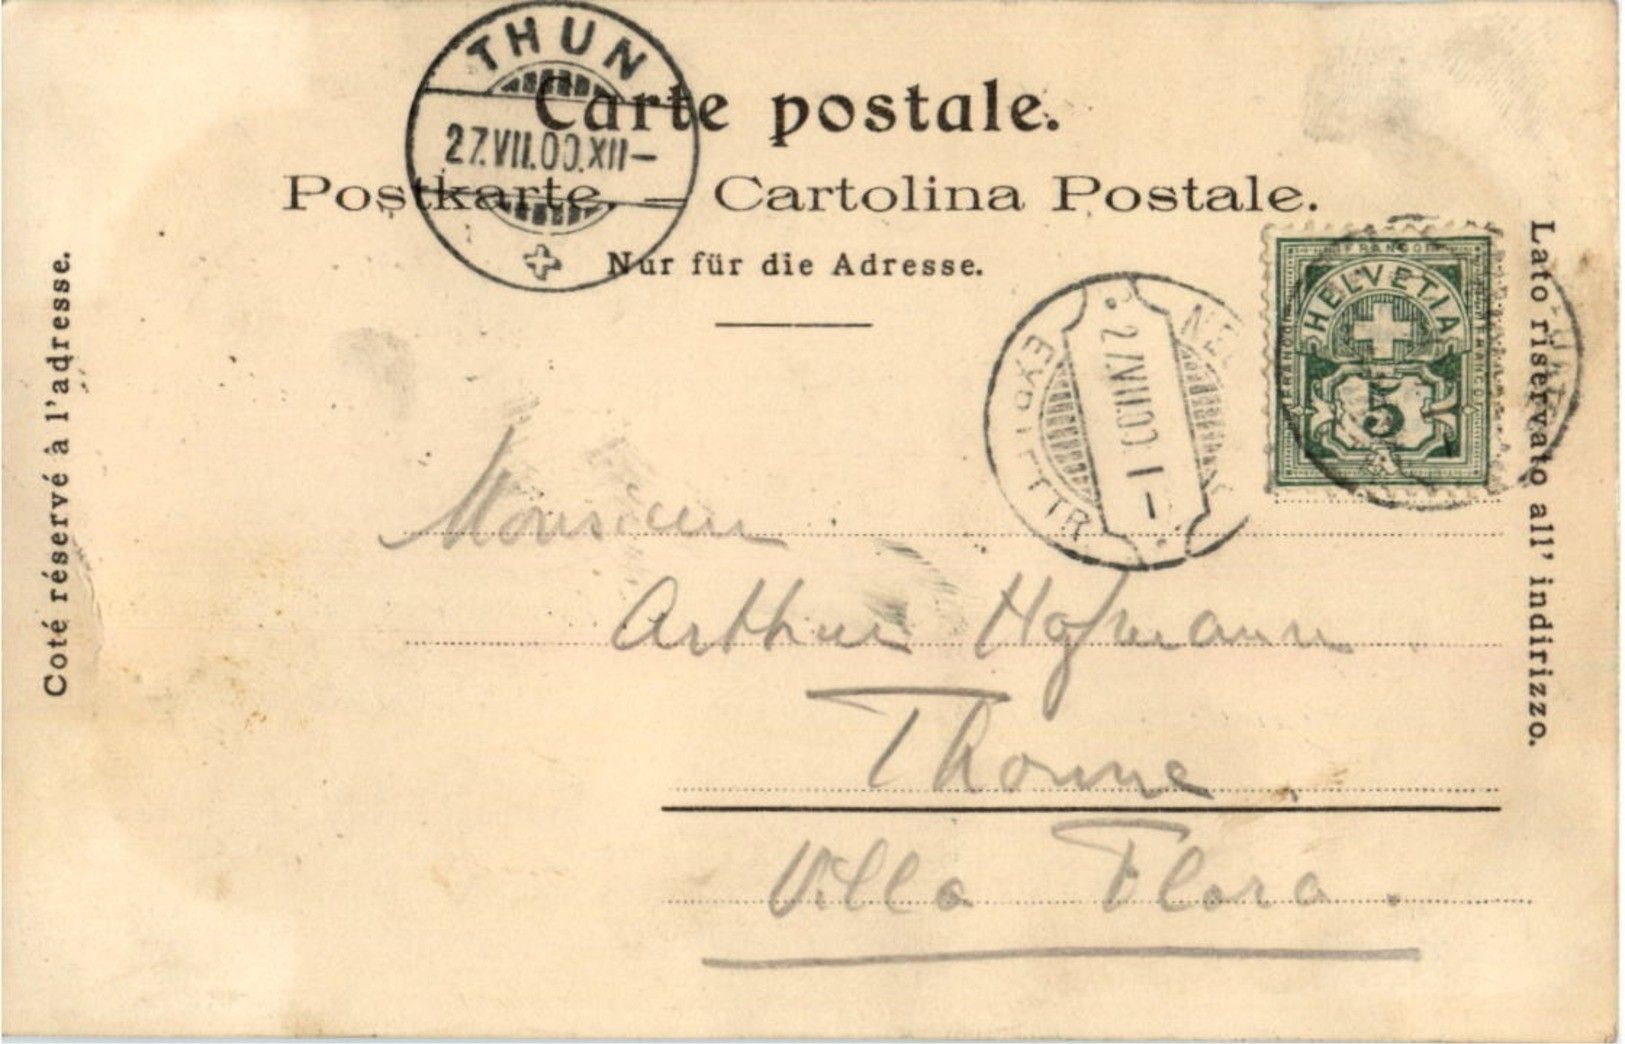 THUN
27.VII.00.XII–
Carte postale.
Postkarte. — Cartolina Postale.
Nur für die Adresse.
Coté réservé à l'adresse.
Lato riservato all' indirizzo.
27.VII.00 I–
EXP. LETTR
FRANCO
HELVETIA
FRANCO
FRANCO
5
Monsieur
Arthur Hofmann
Thoune.
Villa Flora.